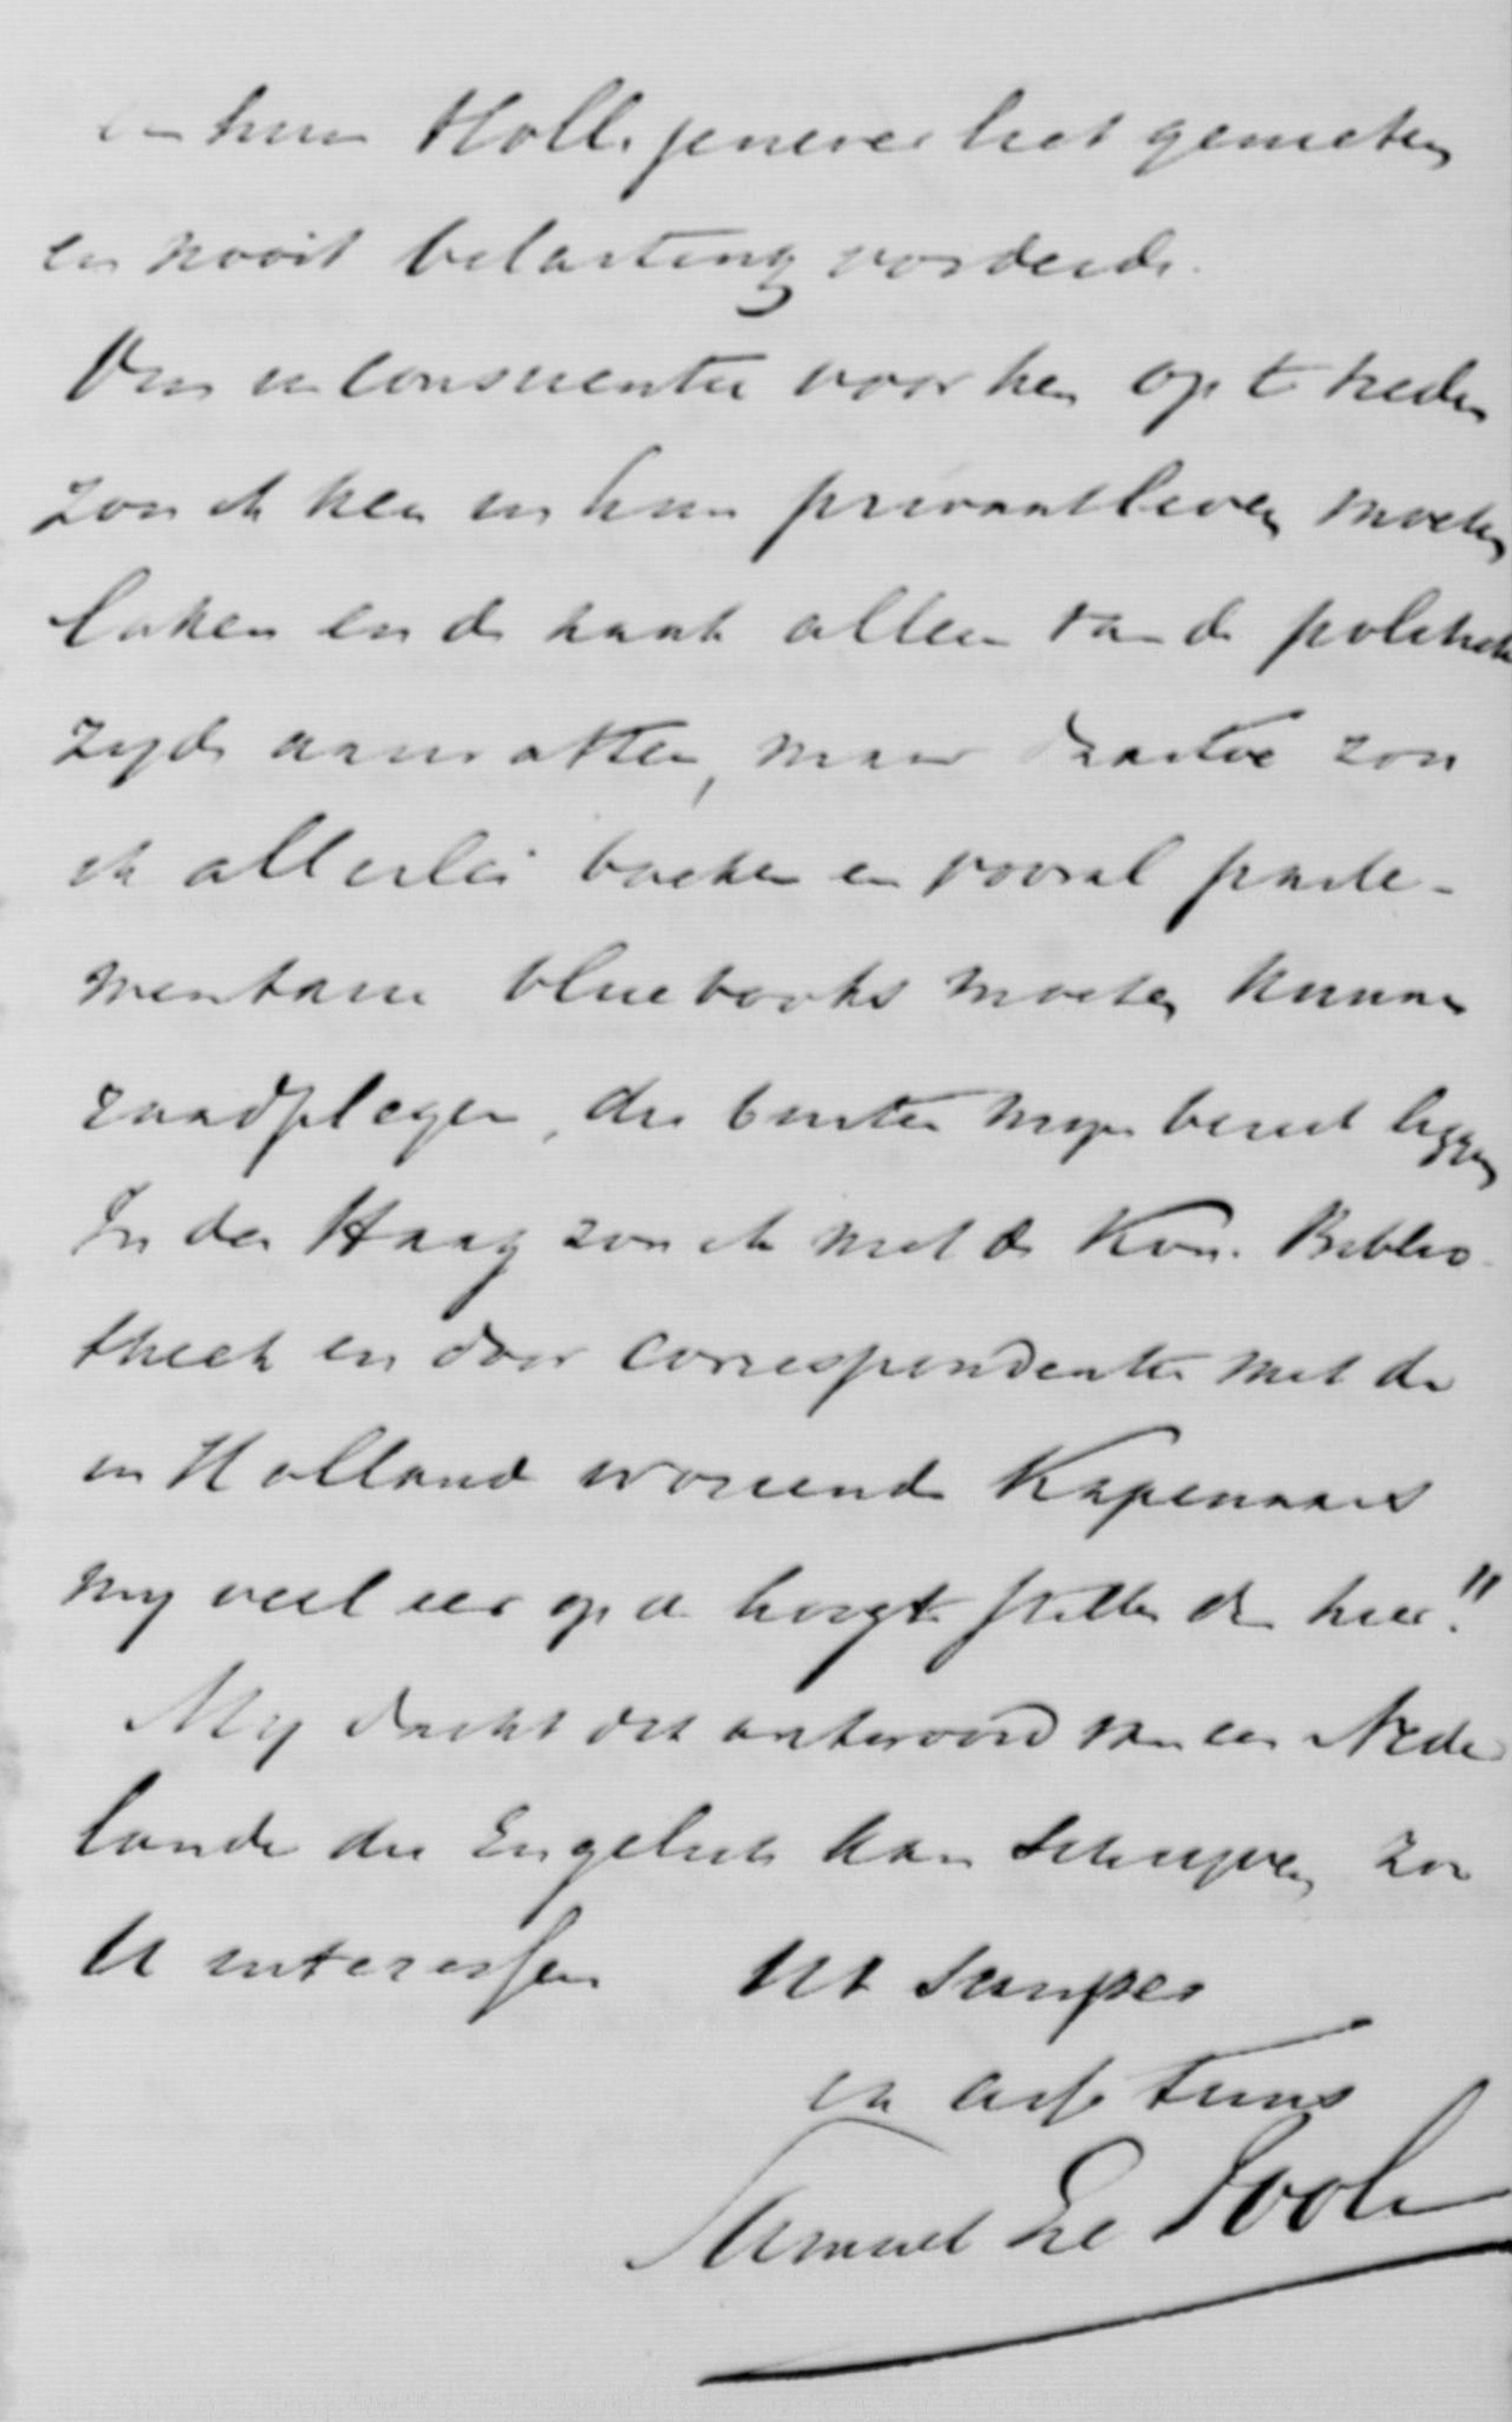 en hun Holl. jenever liet genieten
en nooit belasting vorderde.
Om in consientie voor hen op te treden
zou ik hen in hun privaatleven moeten
laken en de zaak alleen van de politieke
zyde aanvatten, maar daartoe zou
ik allerlei boeken en vooral parle-
mentaire bluebooks moeten kunnen
raadplegen, die buiten myn bereik liggen
In den Haag zou ik met de Kon. Biblio-
theek en door correspondentie met de
in Holland wonende Kapenaars
my veel eer op de hoogte stellen dan hier!"
My dacht dit antwoord van een Neder
lander die Engelsch kan schryven zou
U interessen Ut semper
ex asse tuus
Samuel Le Poole